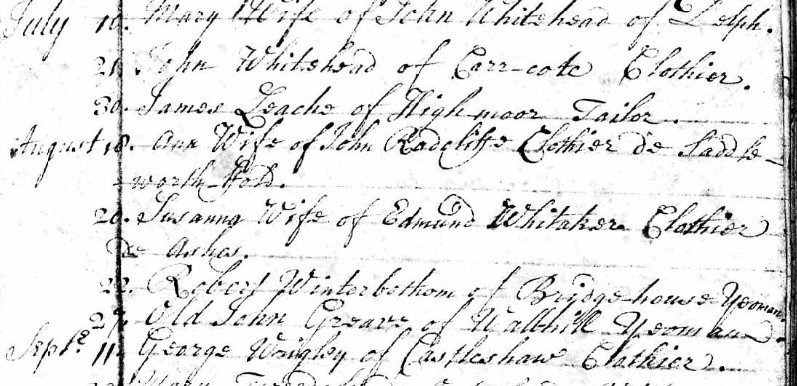 July 10. Mary Wife of John Whitehead of Delph.
21. John Whitehead of Carr-cote Clothier.
30. James Leache of Highmoor Tailor.
August 18. Ann Wife of John Radcliffe Clothier de Saddle-
worth-fold.
20. Susanna Wife of Edmund Whitaker Clothier
de Ashes.
22. Robert Winterbothom of Bridgehouse Yeoman
27. Old John Greave of Wallhill Yeoman.
Septr. 11. George Wrigley of Castleshaw Clothier.
Mary